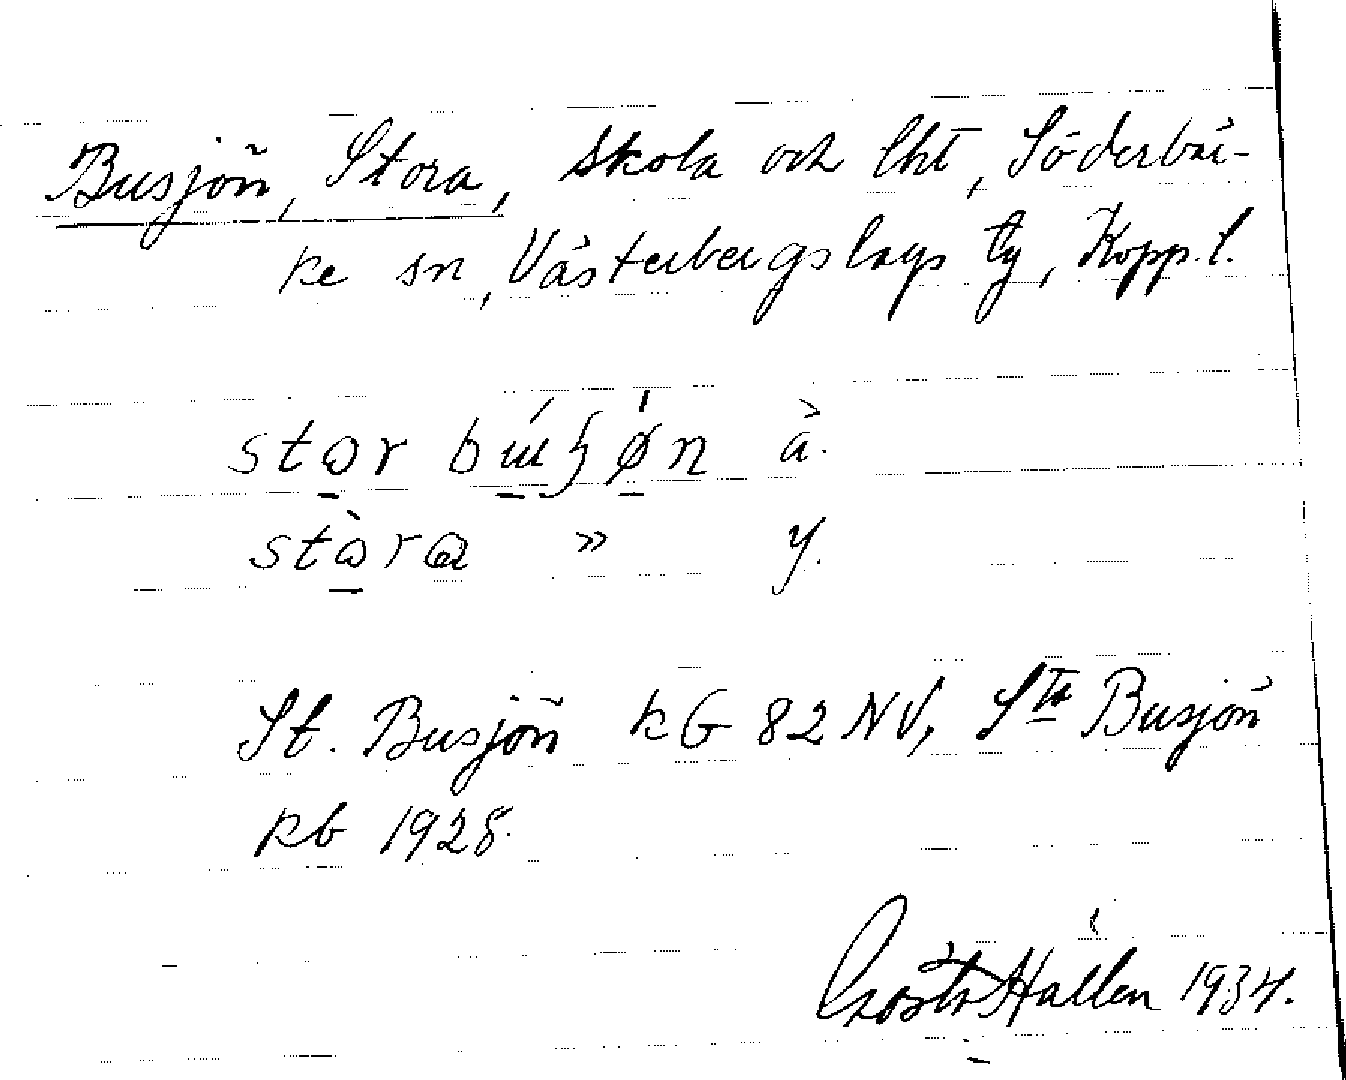 Busjön, Stora, skola och lht, Söderbär-
ke sn, Västerbergslags tg, Kopp. l.
stɷr bɯ́ʂø̍n ä.
stɷ̀ra » y.
St. Busjön kG 82 NV, Sta Busjön
kb 1928.
Gösta Hallén 1934.